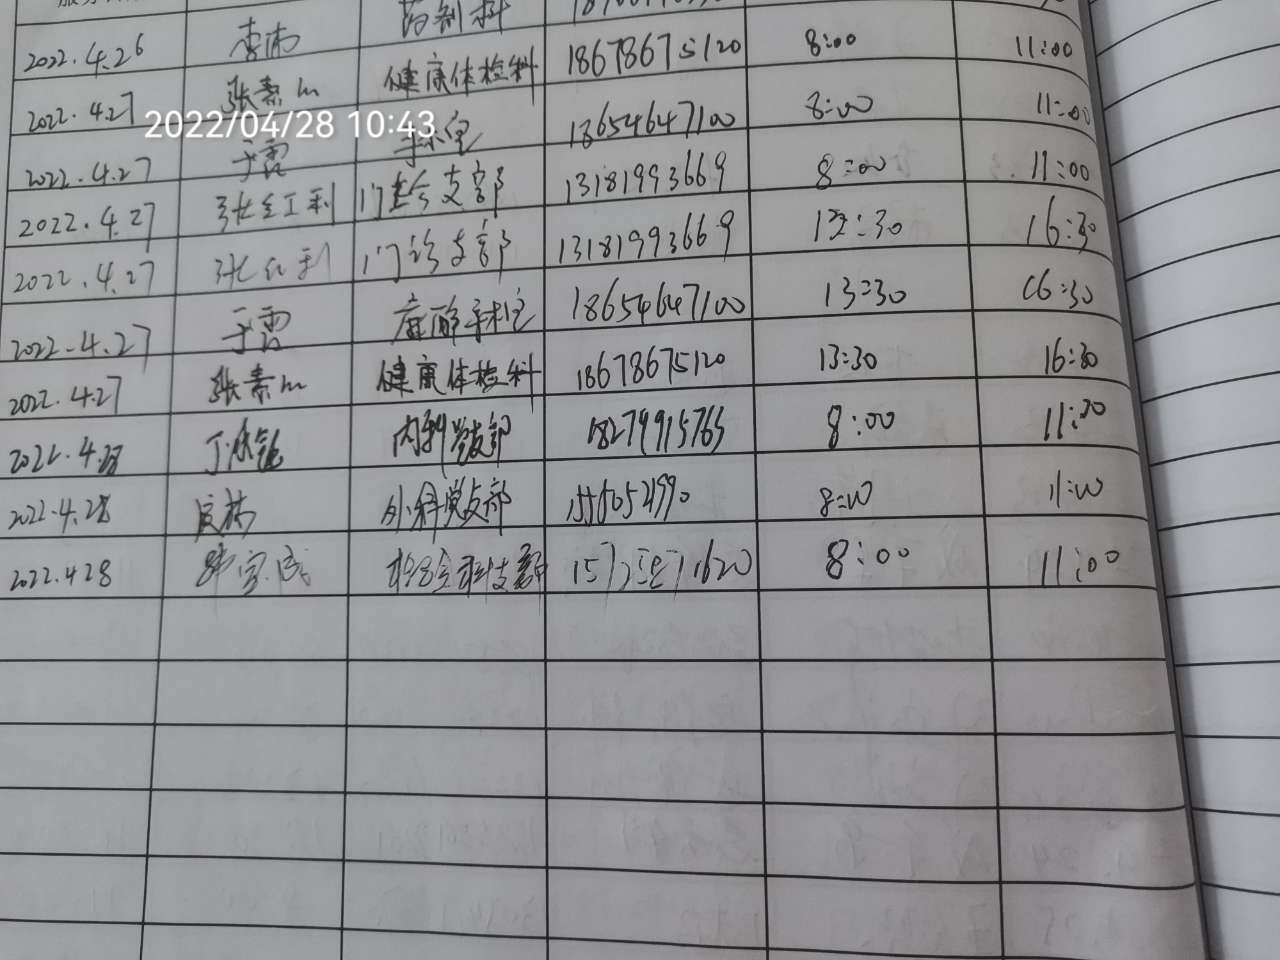 2022.4.26 李南 药剂科
2022.4.27 张素 健康体检科 18678675120 8:00 11:00
2022/04/28 10:43
2022.4.27 于雷 手术室 18654647100 8:00 11:00
2022.4.27 张红利 门诊支部 13181993669 8:00 11:00
2022.4.27 张红利 门诊支部 13181993669 13:30 16:30
2022.4.27 于雷 麻醉手术室 18654647100 13:30 16:30
2022.4.27 张素 健康体检科 18678675120 13:30 16:30
内科党支部 18279915765 8:00 11:00
2022.4.28 外科党支部 8:00 11:00
2022.4.28 检验科支部 8:00 11:00